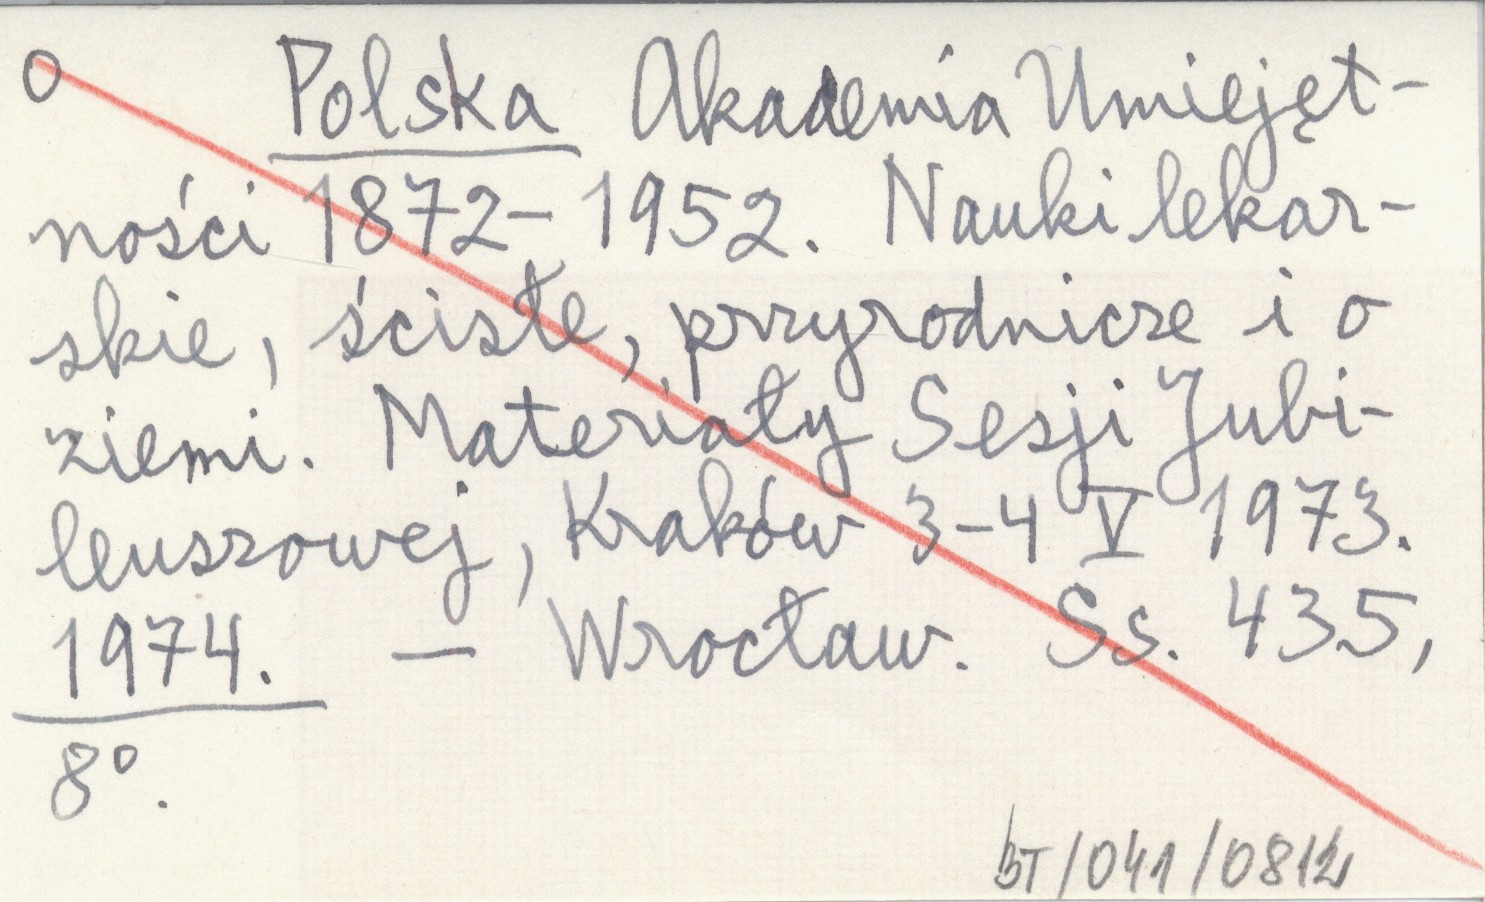 O Polska Akademia Umiejęt-
ności 1872-1952. Nauki lekar-
skie, ścisłe, przyrodnicze i o
ziemi. Materiały Sesji Jubi-
leuszowej, Kraków 3-4 V 1973.
1974. — Wrocław. Ss. 435,
8°.
BT/041/0812